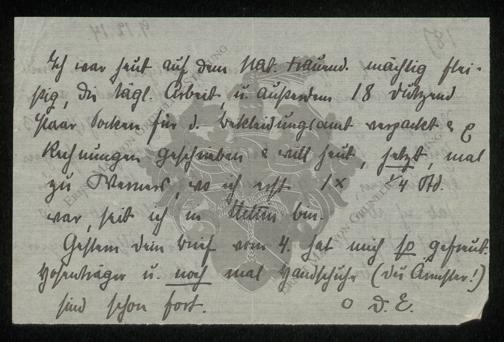 9.12.14
Ich war heut auf dem Nat. Frauend. mächtig flei-
ßig, die tägl. Arbeit, u. außerdem 18 Dutzend
Paar Socken für d. Bekleidungsamt verpackt &
Rechnungen geschrieben & will heut, jetzt, mal
zu Werners, wo ich erst 1x 1/4 Std.
war, seit ich in Stettin bin.
Gestern Dein Brief vom 4. hat mich so gefreut.
Hosenträger u. noch mal Handschuhe (Du Ärmster!)
sind schon fort. D. E.